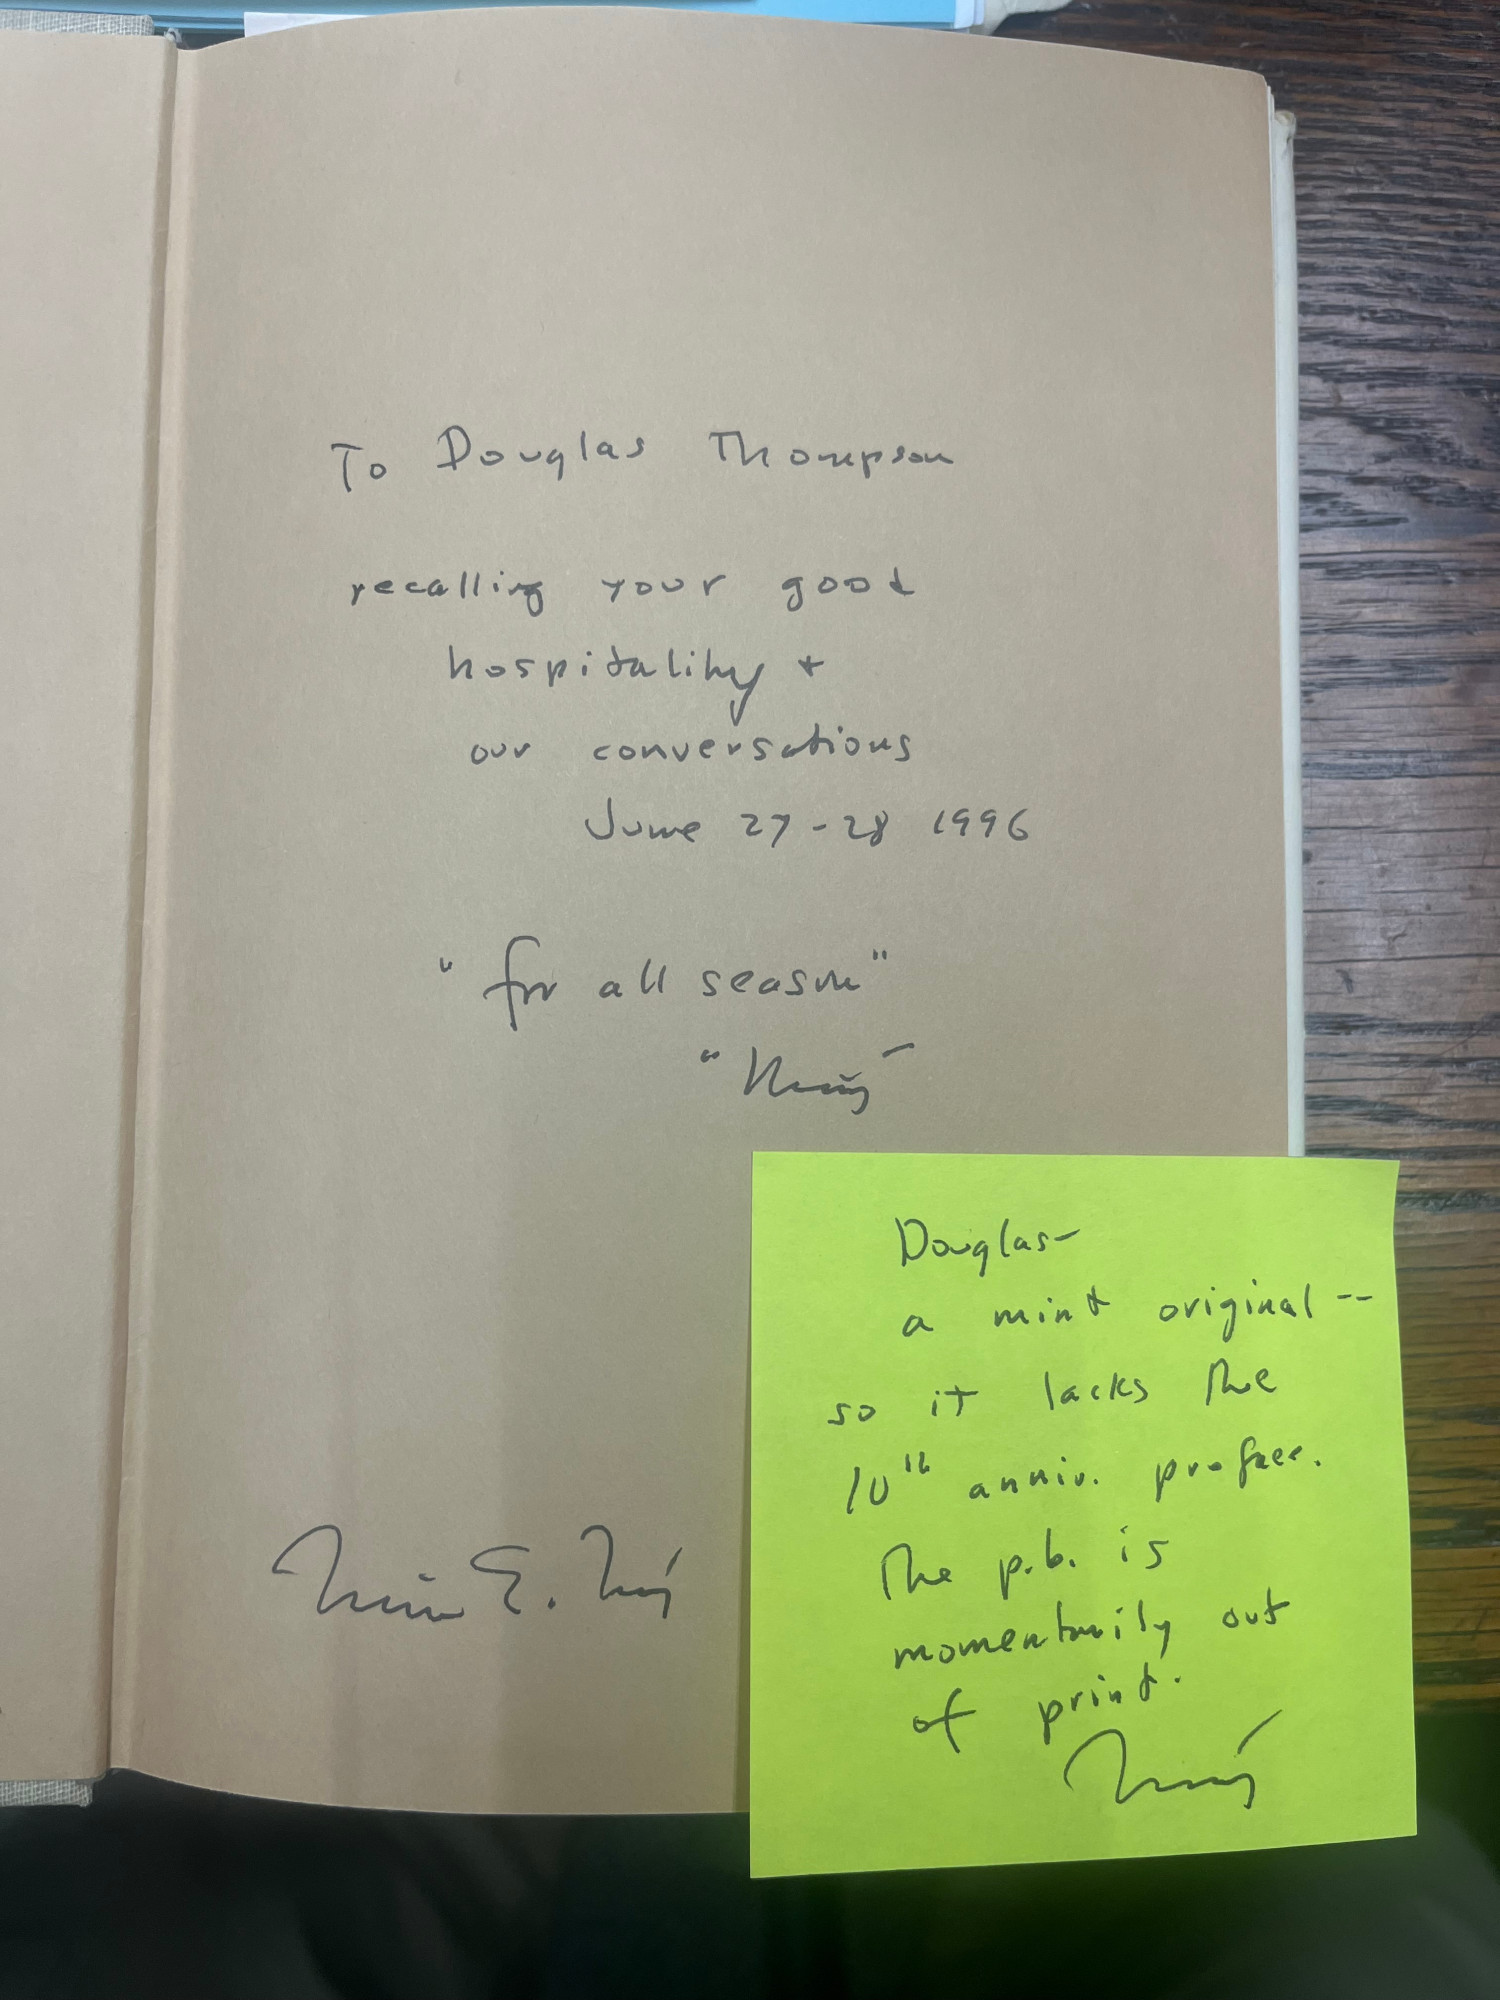 To Douglas Thompson
recalling your good
hospitality +
our conversations
June 27-28 1996
"for all season"
E.
Douglas-
a mint original --
so it lacks the
10th anniv. preface.
The p.b. is
momentarily out
of print.